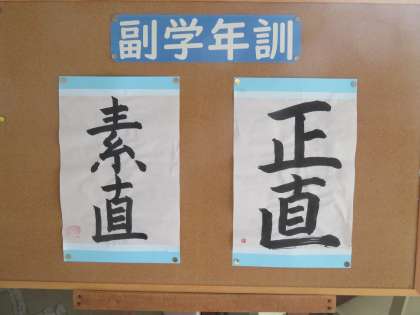 副学年訓
正直
素直